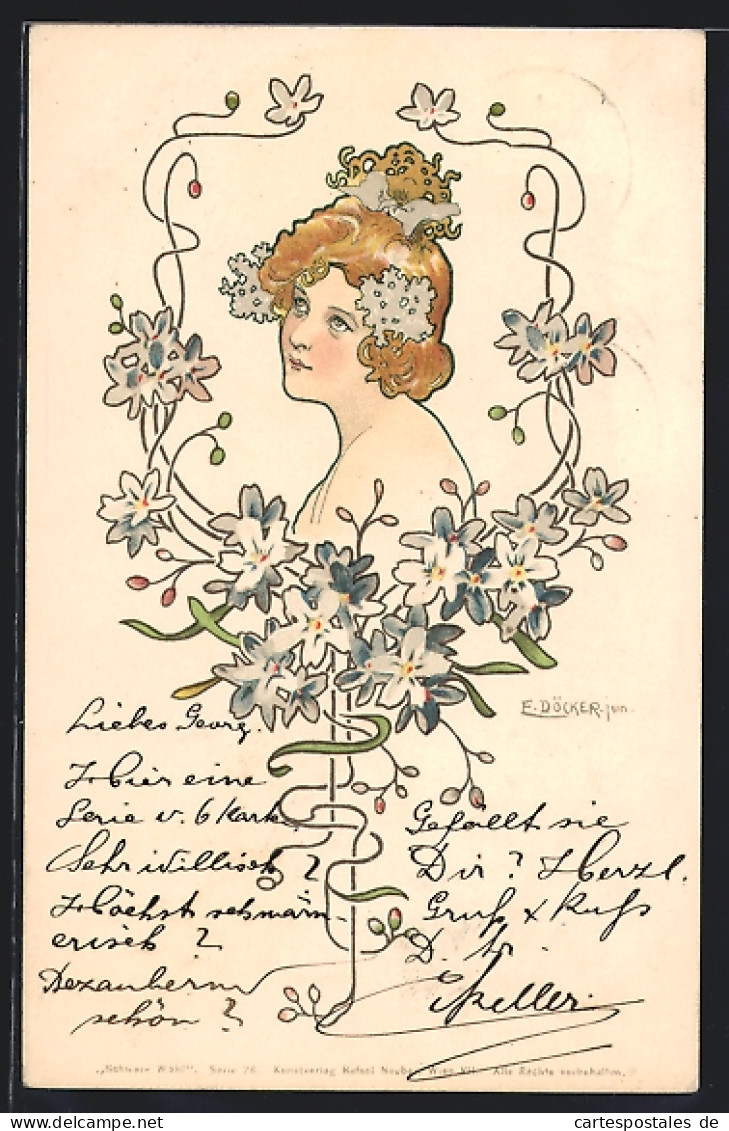 E. DÖCKER jun.
Liebes Georg.
Hier eine
Serie v. 6 Kart.
Sehr idillisch?
Höchst schwärm-
erisch?
Bezaubernd
schön?
Gefällt sie
Dir? Herzl.
Gruß & Kuß
D. tr.
Keller.
„Schwere Wahl“. Serie 76. Kunstverlag Rafael Neuber, Wien, VII. Alle Rechte vorbehalten.
delcampe.net
cartespostales de